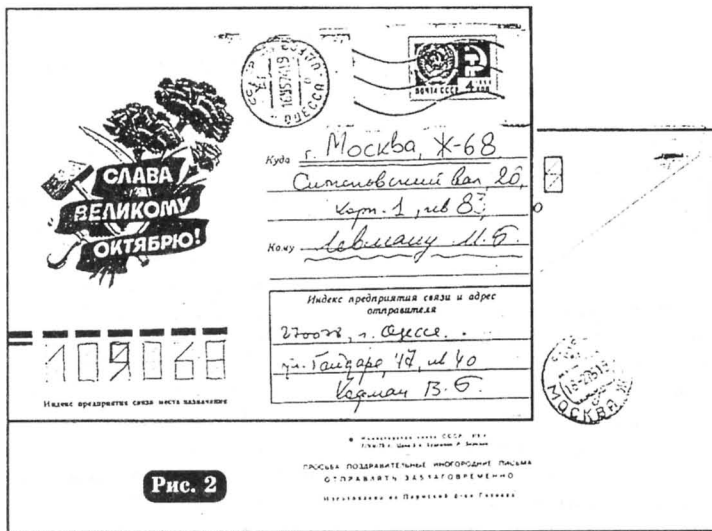 ОДЕССА
ПОЧТА СССР 4 КОП
СЛАВА
ВЕЛИКОМУ
ОКТЯБРЮ!
Куда г. Москва, Ж-68
вал, 20,
корп. 1, кв 83
Кому Левману М.Б.
Индекс предприятия связи и адрес
отправителя
г. Одесса
ул. Гайдара, 47, кв 40
В. Б.
109068
Индекс предприятия связи места назначения
МОСКВА
Министерство связи СССР
ПРОСЬБА ПОЗДРАВИТЕЛЬНЫЕ ИНОГОРОДНИЕ ПИСЬМА
ОТПРАВЛЯТЬ ЗАБЛАГОВРЕМЕННО
Изготовлено на Пермской ф-ке Гознака
Рис. 2